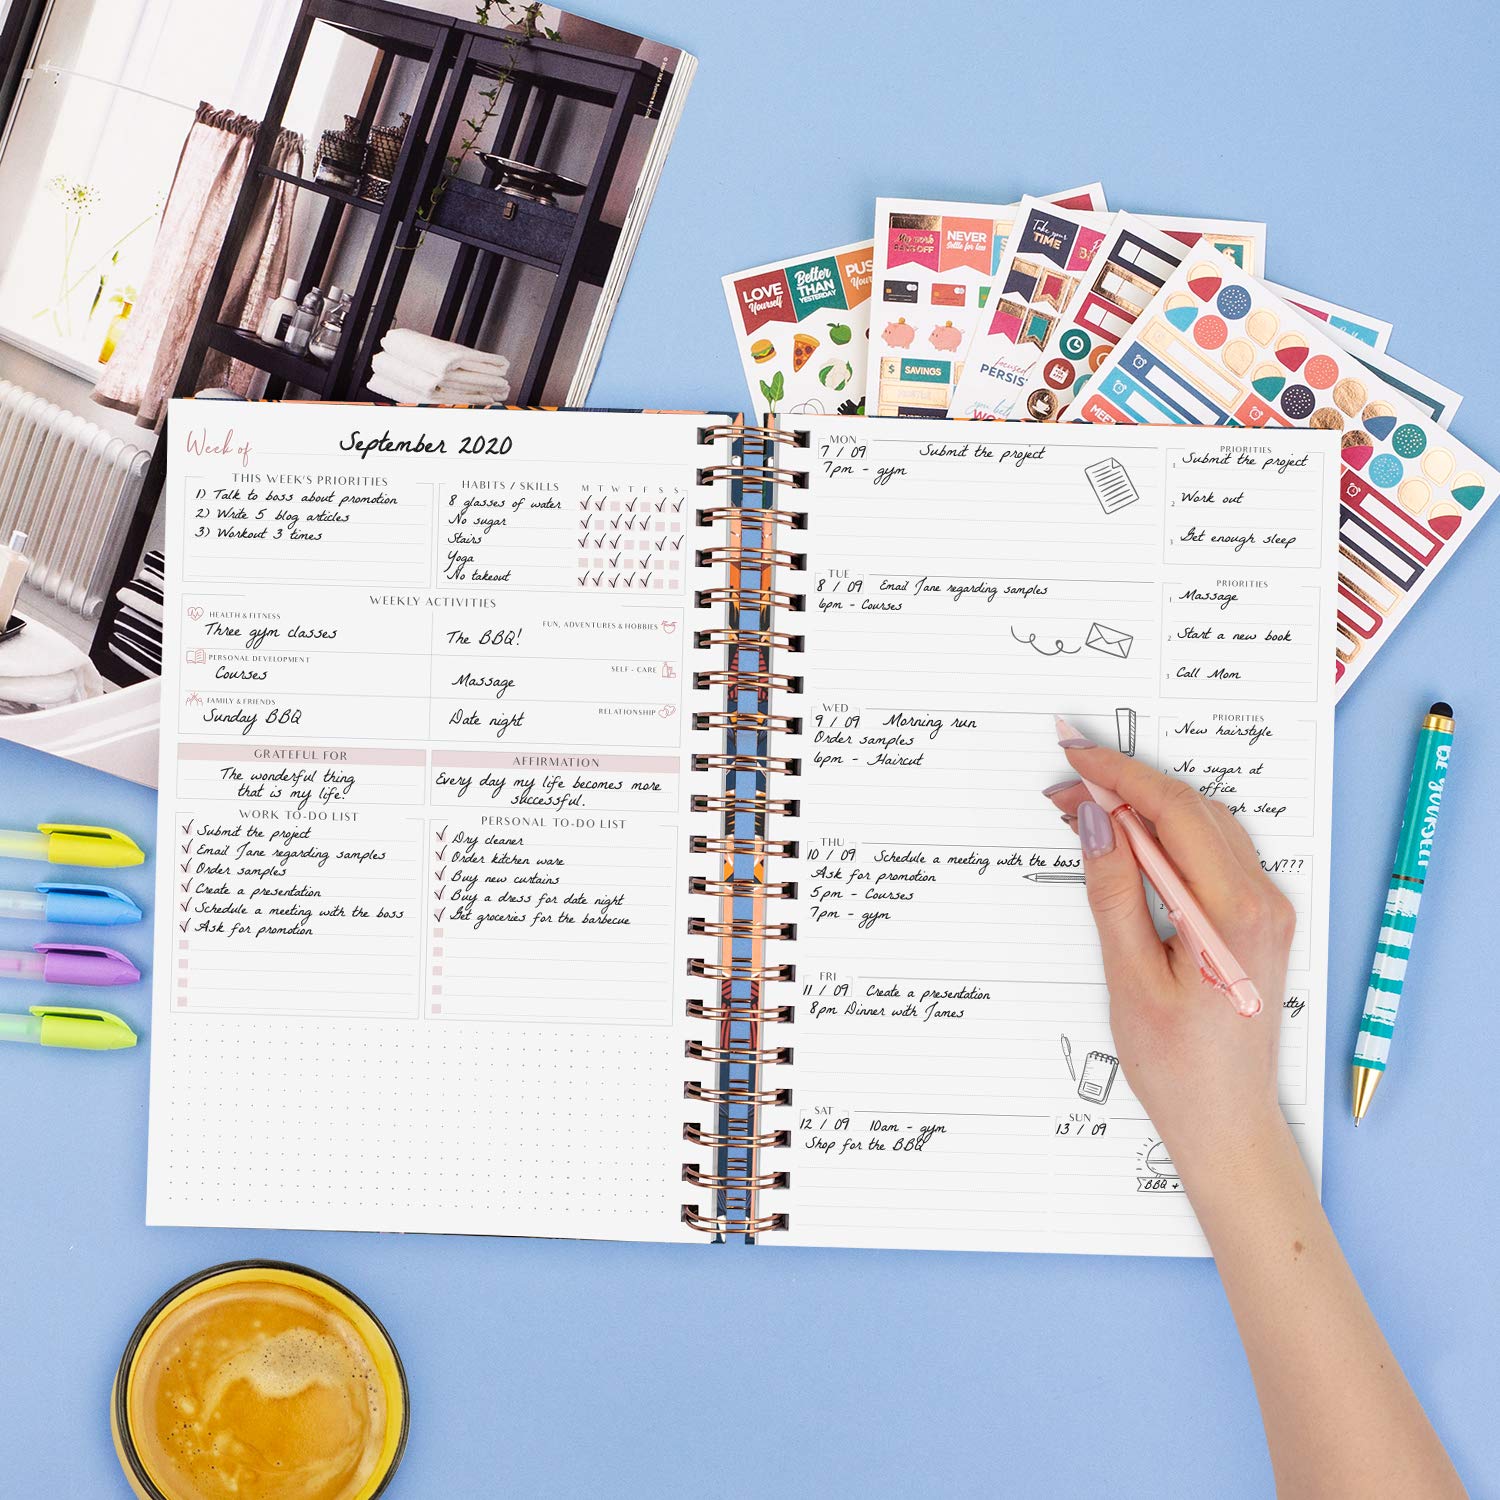 Week of September 2020
THIS WEEK'S PRIORITIES
1) Talk to boss about promotion
2) Write 5 blog articles
3) Workout 3 times
HABITS / SKILLS
M T W T F S S
8 glasses of water
No sugar
Stairs
Yoga
No takeout
WEEKLY ACTIVITIES
HEALTH & FITNESS
Three gym classes
FUN, ADVENTURES & HOBBIES
The BBQ!
PERSONAL DEVELOPMENT
Courses
SELF - CARE
Massage
FAMILY & FRIENDS
Sunday BBQ
RELATIONSHIP
Date night
GRATEFUL FOR
The wonderful thing
that is my life!
AFFIRMATION
Every day my life becomes more
successful.
WORK TO-DO LIST
Submit the project
Email Jane regarding samples
Order samples
Create a presentation
Schedule a meeting with the boss
Ask for promotion
PERSONAL TO-DO LIST
Dry cleaner
Order kitchen ware
Buy new curtains
Buy a dress for date night
Get groceries for the barbecue
MON
7 / 09 Submit the project
7pm - gym
PRIORITIES
1 Submit the project
2 Work out
3 Get enough sleep
TUE
8 / 09 Email Jane regarding samples
6pm - Courses
PRIORITIES
1 Massage
2 Start a new book
3 Call Mom
WED
9 / 09 Morning run
Order samples
6pm - Haircut
PRIORITIES
1 New hairstyle
2 No sugar at
office
sleep
THU
10 / 09 Schedule a meeting with the boss
Ask for promotion
5pm - Courses
7pm - gym
2
FRI
11 / 09 Create a presentation
8pm Dinner with James
SAT
12 / 09 10am - gym
Shop for the BBQ
SUN
13 / 09
BBQ +
LOVE
Yourself
Better
THAN
YESTERDAY
PUS
Your
My work
PAYS OFF
NEVER
Settle for less
$ SAVINGS
Take your
TIME
focused
PERSIS
you bet
WO
MEET
BE YOURSELF